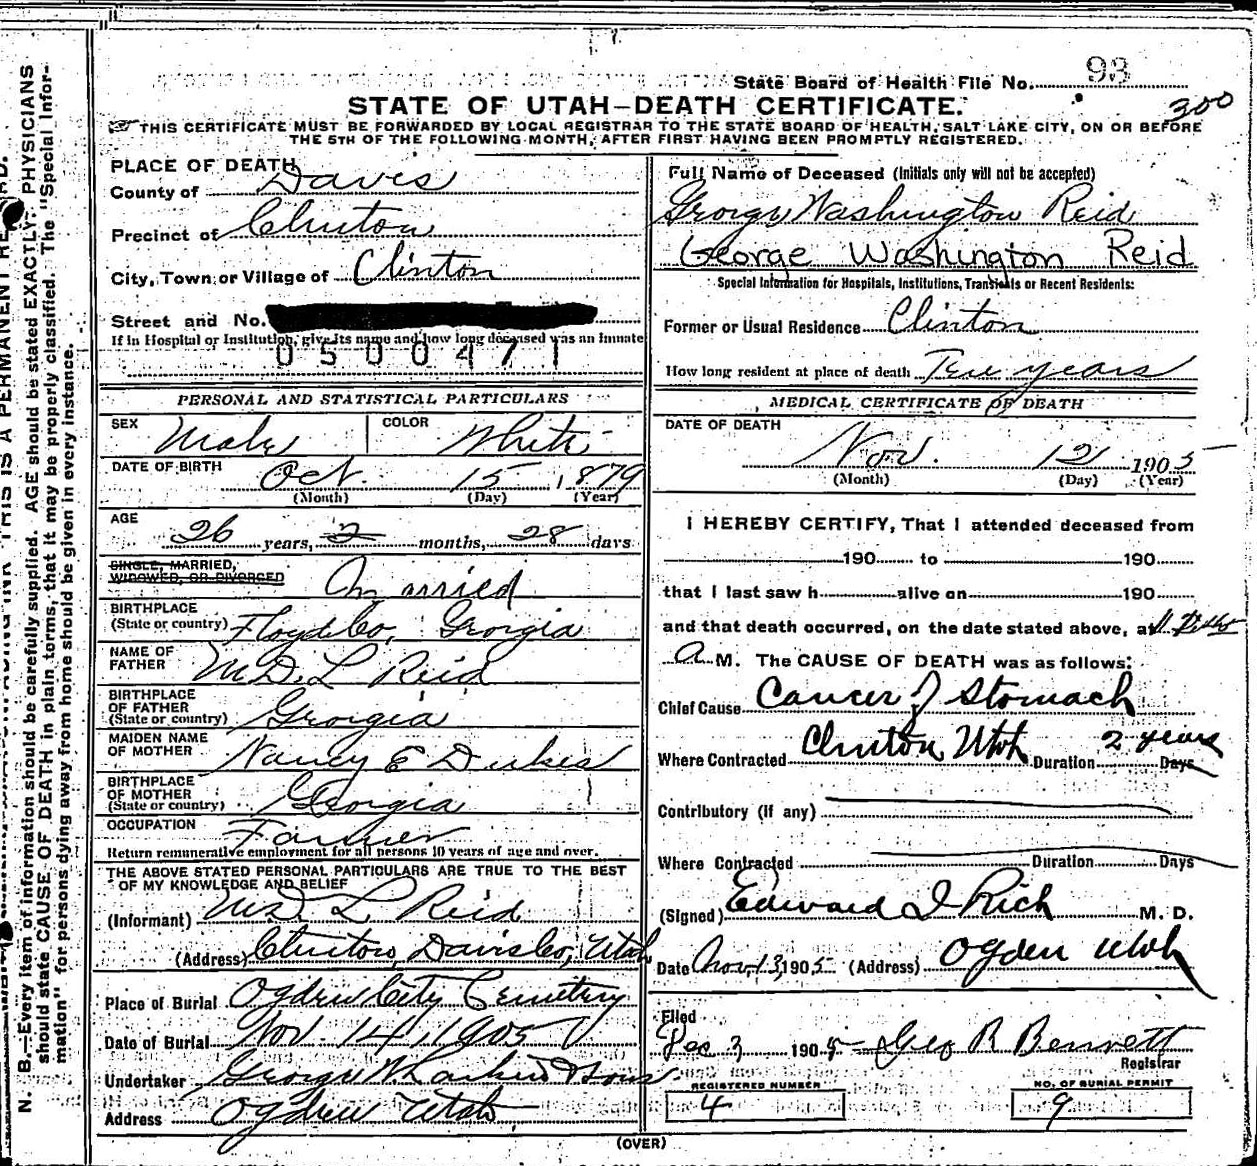 State Board of Health File No. 93
300
STATE OF UTAH—DEATH CERTIFICATE.
THIS CERTIFICATE MUST BE FORWARDED BY LOCAL REGISTRAR TO THE STATE BOARD OF HEALTH, SALT LAKE CITY, ON OR BEFORE
THE 5TH OF THE FOLLOWING MONTH, AFTER FIRST HAVING BEEN PROMPTLY REGISTERED.
PLACE OF DEATH
County of Davis
Precinct of Clinton
City, Town or Village of Clinton
Street and No.
If in Hospital or Institution, give its name and how long deceased was an inmate
0500471
PERSONAL AND STATISTICAL PARTICULARS
SEX Male COLOR White
DATE OF BIRTH Oct. 15, 1879
(Month) (Day) (Year)
AGE
26 years, 2 months, 28 days
SINGLE, MARRIED,
WIDOWED, OR DIVORCED Married
BIRTHPLACE
(State or country) Floyd Co, Georgia
NAME OF
FATHER M D. L Reid
BIRTHPLACE
OF FATHER
(State or country) Georgia
MAIDEN NAME
OF MOTHER Nancy E Dukes
BIRTHPLACE
OF MOTHER
(State or country) Georgia
OCCUPATION Farmer
Return remunerative employment for all persons 10 years of age and over.
THE ABOVE STATED PERSONAL PARTICULARS ARE TRUE TO THE BEST
OF MY KNOWLEDGE AND BELIEF
(Informant) M D. L Reid
(Address) Clinton, Davis Co, Utah
Place of Burial Ogden City Cemetery
Date of Burial Nov. 14, 1905
Undertaker George W. Larkin & Sons
Address Ogden Utah
Full Name of Deceased (Initials only will not be accepted)
George Washington Reid
George Washington Reid
Special Information for Hospitals, Institutions, Transients or Recent Residents:
Former or Usual Residence Clinton
How long resident at place of death Ten years
MEDICAL CERTIFICATE OF DEATH
DATE OF DEATH
Nov. 12 1905
(Month) (Day) (Year)
I HEREBY CERTIFY, That I attended deceased from
190 to 190
that I last saw h alive on 190
and that death occurred, on the date stated above, at
A M. The CAUSE OF DEATH was as follows:
Chief Cause Cancer of Stomach
Where Contracted Clinton, Utah Duration 2 years Days
Contributory (if any)
Where Contracted Duration Days
(Signed) Edward I Rich M. D.
Date Nov. 13, 1905 (Address) Ogden Utah
Filed
Dec 3 1905 Geo R Bennett
Registrar
REGISTERED NUMBER
4
NO. OF BURIAL PERMIT
9
(OVER)
N. B.—Every item of information should be carefully supplied. AGE should be stated EXACTLY. PHYSICIANS
should state CAUSE OF DEATH in plain terms, that it may be properly classified. The "Special Infor-
mation" for persons dying away from home should be given in every instance.
THIS IS A PERMANENT